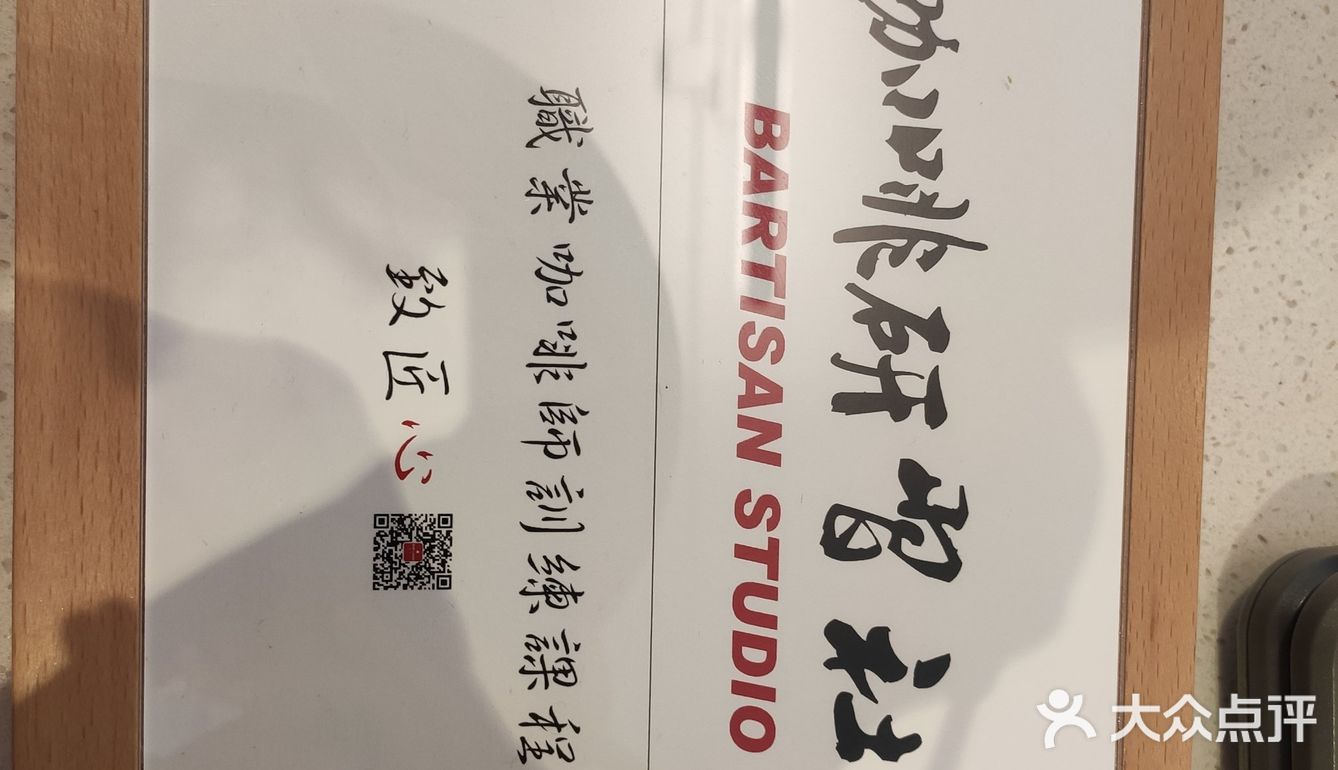 咖啡研習社
BARTISAN STUDIO
職業咖啡師訓練課程
致匠心
大众点评